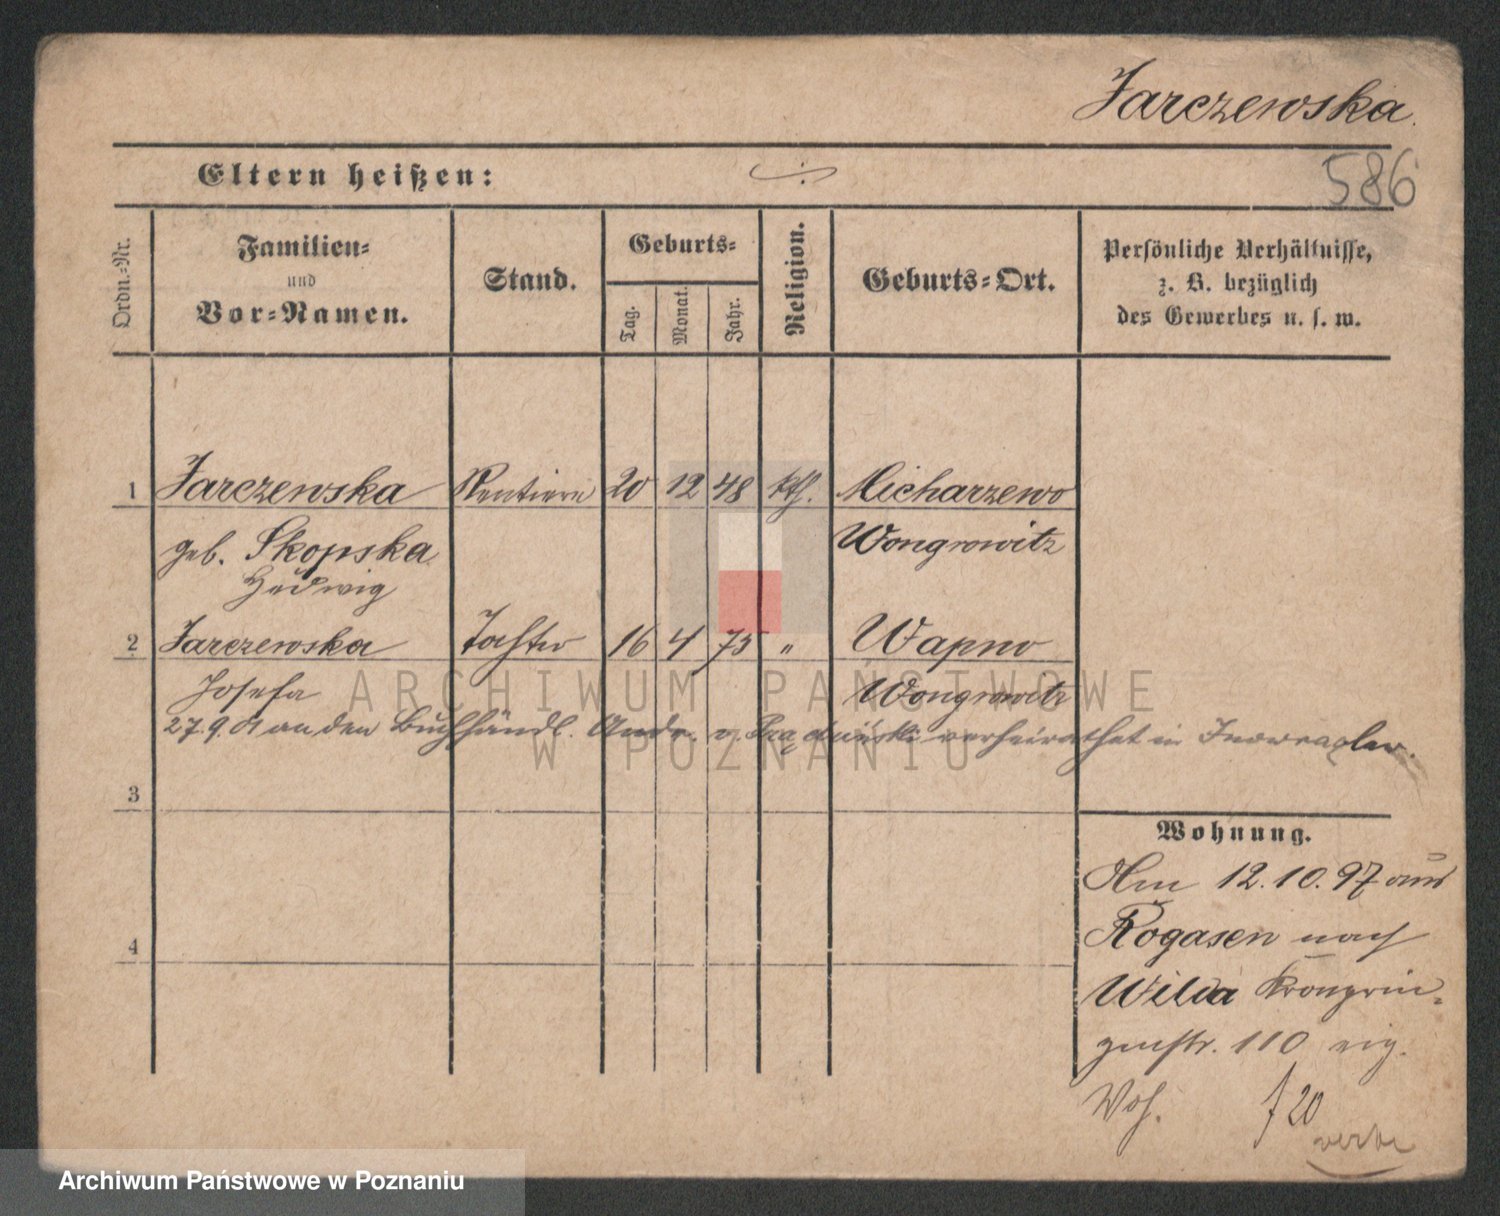 Jarczewska.
586
Eltern heißen:
Ordn.-Nr.
Familien-
und
Vor-Namen.
Stand.
Geburts-
Tag.
Monat.
Jahr.
Religion.
Geburts-Ort.
Persönliche Verhältnisse,
z. B. bezüglich
des Gewerbes u. s. w.
1 Jarczewska Rentiere 20 12 48 kth. Micharzewo
geb. Skopska Wongrowitz
Hedwig
2 Jarczewska Tochter 16 4 75 " Wapno
Josefa Wongrowitz
27.9.01 an den Buchhändl. Andr. v. verheirathet in
3
4
Wohnung.
Am 12.10.97 aus
Rogasen nach
Wilda Kronprin-
zenstr. 110 eig.
Woh. f 20
ARCHIWUM PAŃSTWOWE
W POZNANIU
Archiwum Państwowe w Poznaniu